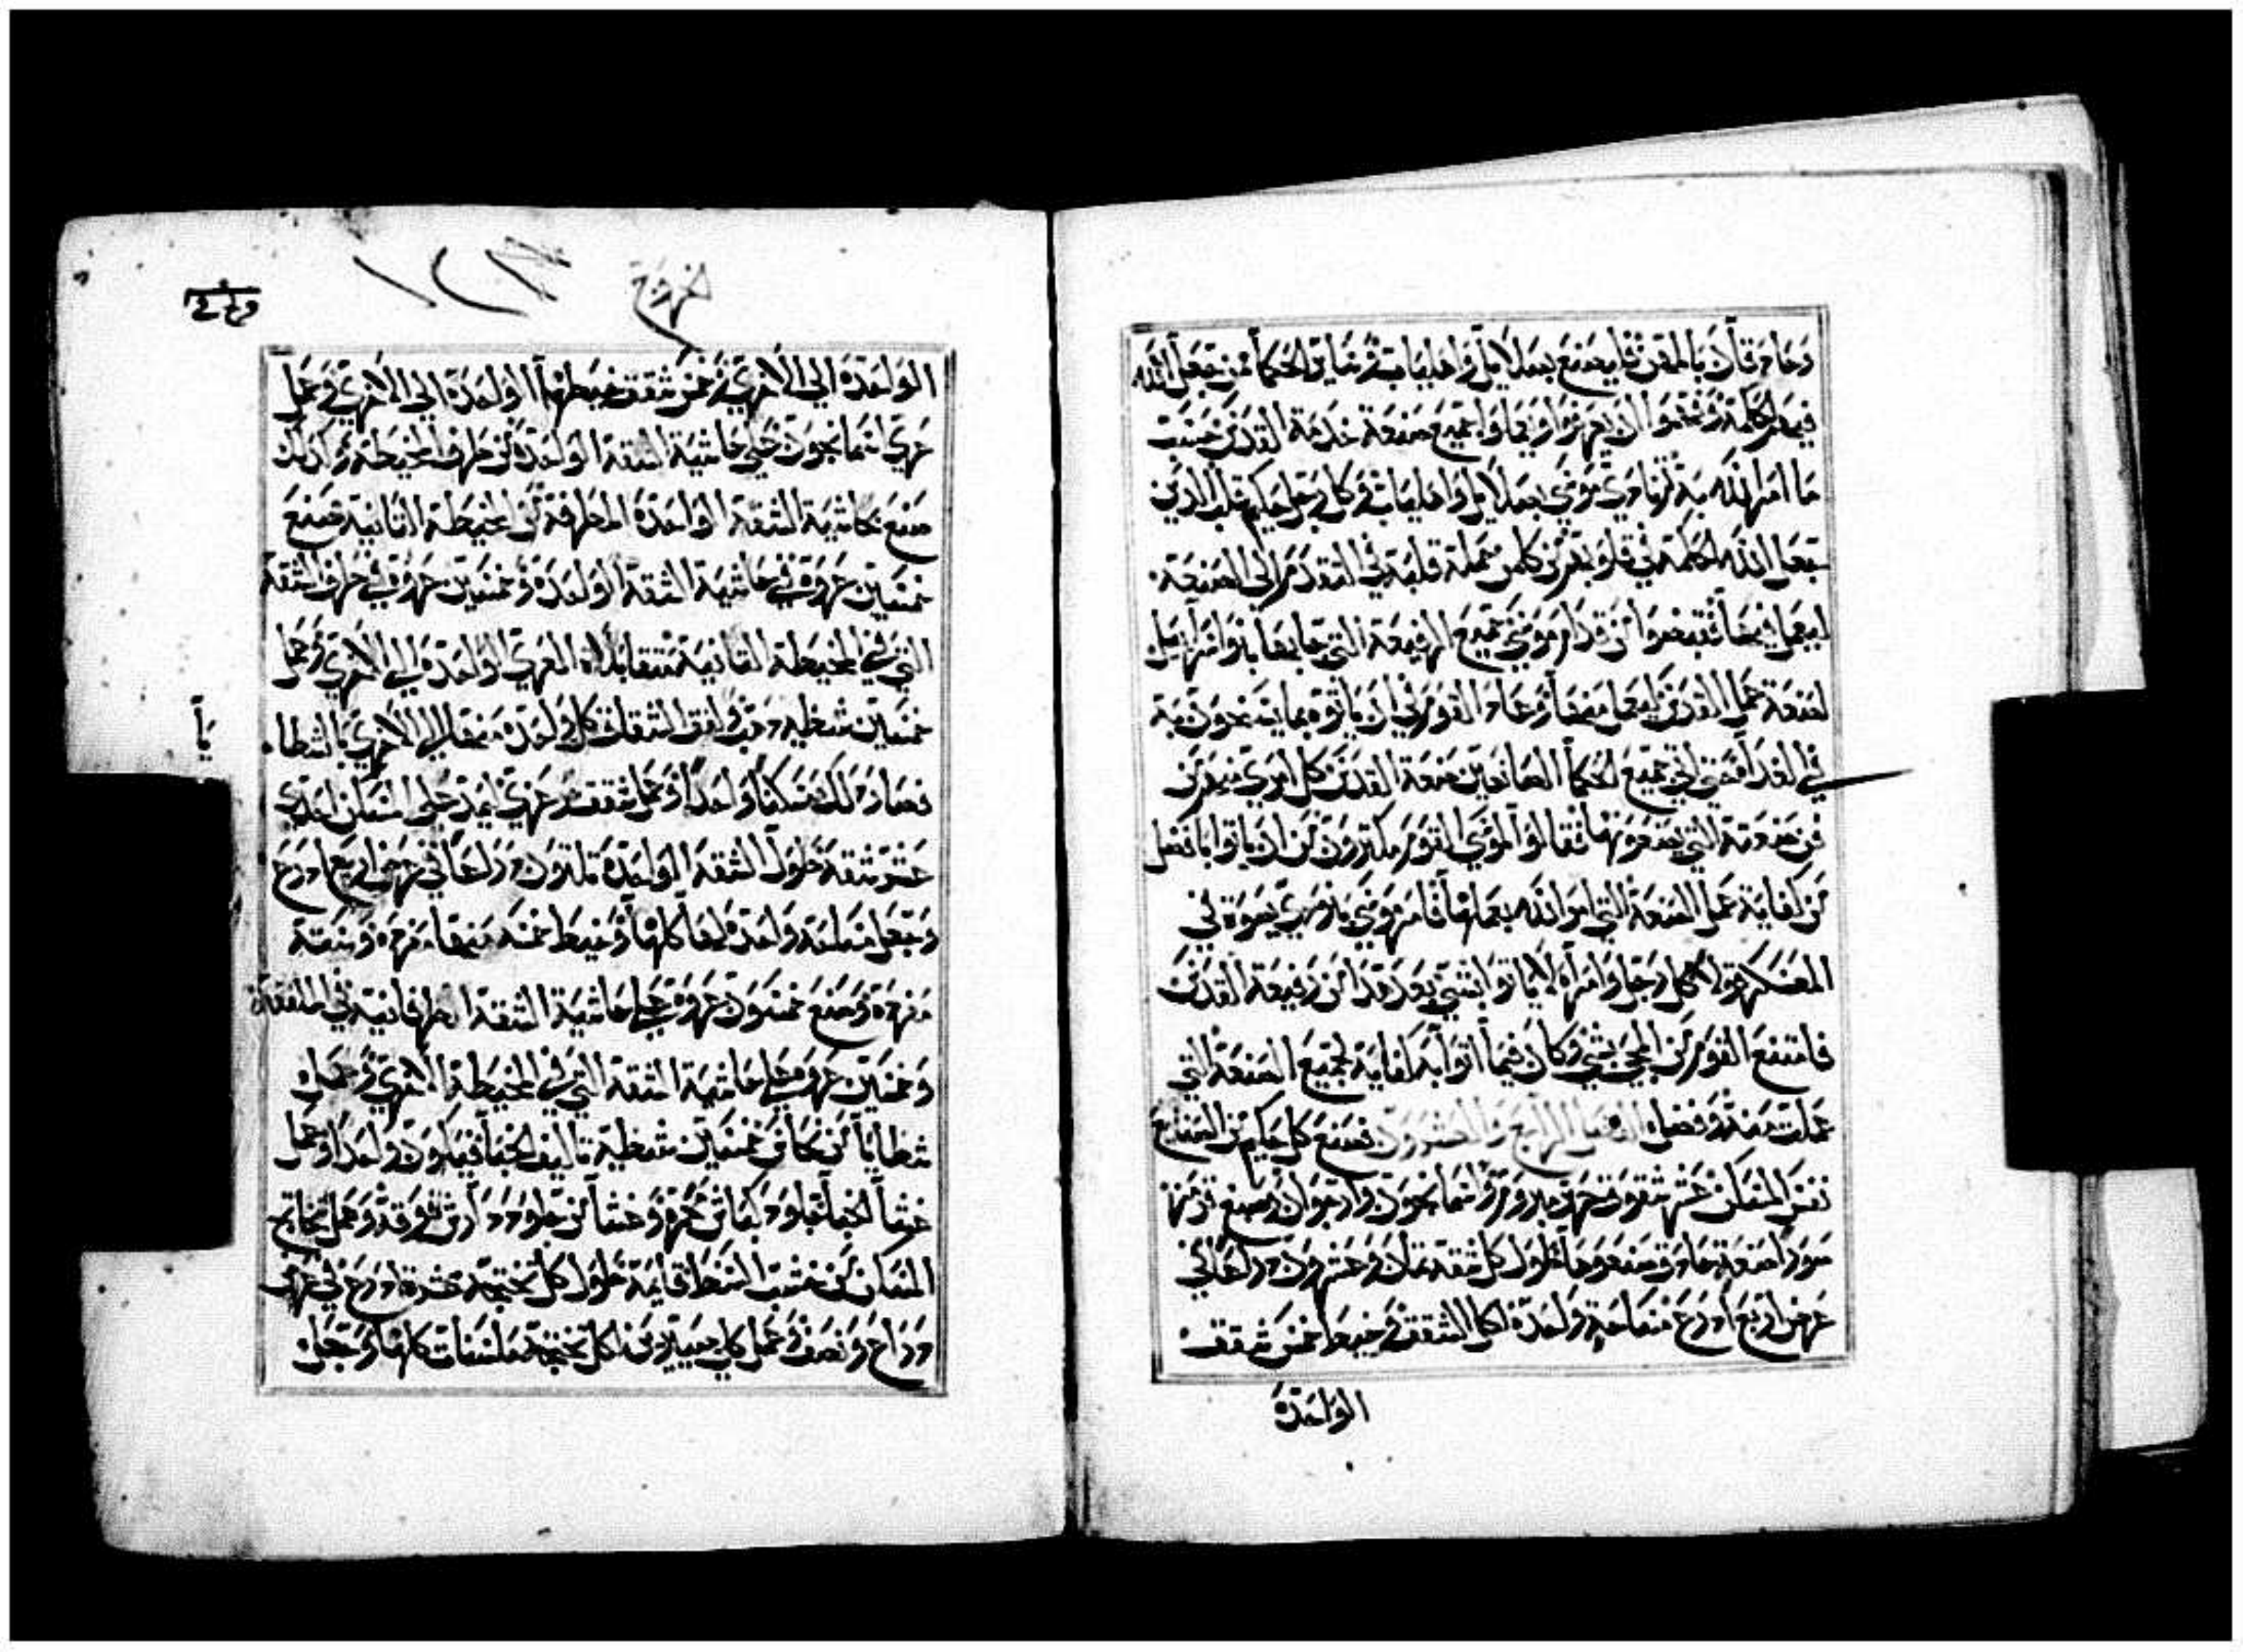 وحاذقاً بالمهن فليصنع بصلايل واهلياب وساير الحكماء ممن جعل الله
فيهم حكمة وفهموا ان يعرفوا ويعملوا جميع صنعة خدمة القدس حسب
ما امر الله به ثم نادى موسى بصلايل واهلياب وكل رجل حكيم قلب الذين
جعل الله الحكمة في قلوبهم من كلمن حمله قلبه في التقدم الى الصنعة
ليعمل فيها فقبضوا من قدام موسى جميع الرفيعة التي جا بها بنو اسرايل
لصنعة عمل القدس ليعمل منها وعاد القوم في ان ياتوه بما يسخون به
في الغداة فمضى اتى جميع الحكماء الصانعين صنعة القدس كل امرى منهم من
من صنعته التي يصنعونها فقالوا لموسى القوم مكثرون من ان ياتوا بافضل
من كفاية عمل الصنعة التي امر الله بعملها فامر موسى بان مرى بصوت في
المعسكر قولا كل رجل وامراة لا ياتوا بشي بعد هذا من رفيعة القدس
فامتنع القوم من المجي بشي وكان فيما اتوا به كفاية لجميع الصنعة التي
عملت منه وفضل الفصل الرابع والعشرون فصنع كل حكيم من الصناع
نفس المسكن عشر شقق عشر مبروم واسمانجون وارجوان وصبغ قرمز
صوراً صنعة حاذق صنعوها طول كل شقة ثمان وعشرون ذراعا في
عرض اربع اذرع مساحة واحدة لكل الشقق وخيط خمس شقق
الواحدة
الواحدة الى الاخرى وخمس شقق خيطها الواحدة الى الاخرى وعمل
عرى اسمانجون على حاشية الشقة الواحدة من طرف المخيطة وكذلك
صنع بحاشية الشقة الواحدة المطرفة من المخيطة الثانية صنع
خمسين عروة في حاشية الشقة الواحدة وخمسين عروة في طرف الشقة
التي في المخيطة الثانية متقابلات العرى الواحدة الى الاخرى وعمل
خمسين شظيه ذهب والفق الشقاق كل واحدة منها الى الاخرى بالشظاء
فصار ذلك مسكناً واحداً وعمل شقق مرعزى ليمد على المسكن احدى
عشر شقة طول الشقة الواحدة ثلثون ذراعاً في عرض اربع اذرع
وجعل مساحة واحدة لها كلها وخيط خمسه منها مفرده وستة
مفردة وصنع خمسون عروة على حاشية الشقة الطرفانية في الملفقة
وخمسين عروه على حاشية الشقة التي في المخيطة الاخرى وعمله
شظايا من نحاس خمسين شظية تاليف الخبا فيكون واحداً وعمل
غشاً للخبا جلود كباش محمره وغشاً من جلود دارش من فوقه وعمل تخاتج
المسكن من خشب السنط قايمة طول كل تختجة عشرة اذرع في عرض
ذراع ونصف وعمل كل صيرين لكل تختجة ملسنات كلها وجعل
يا